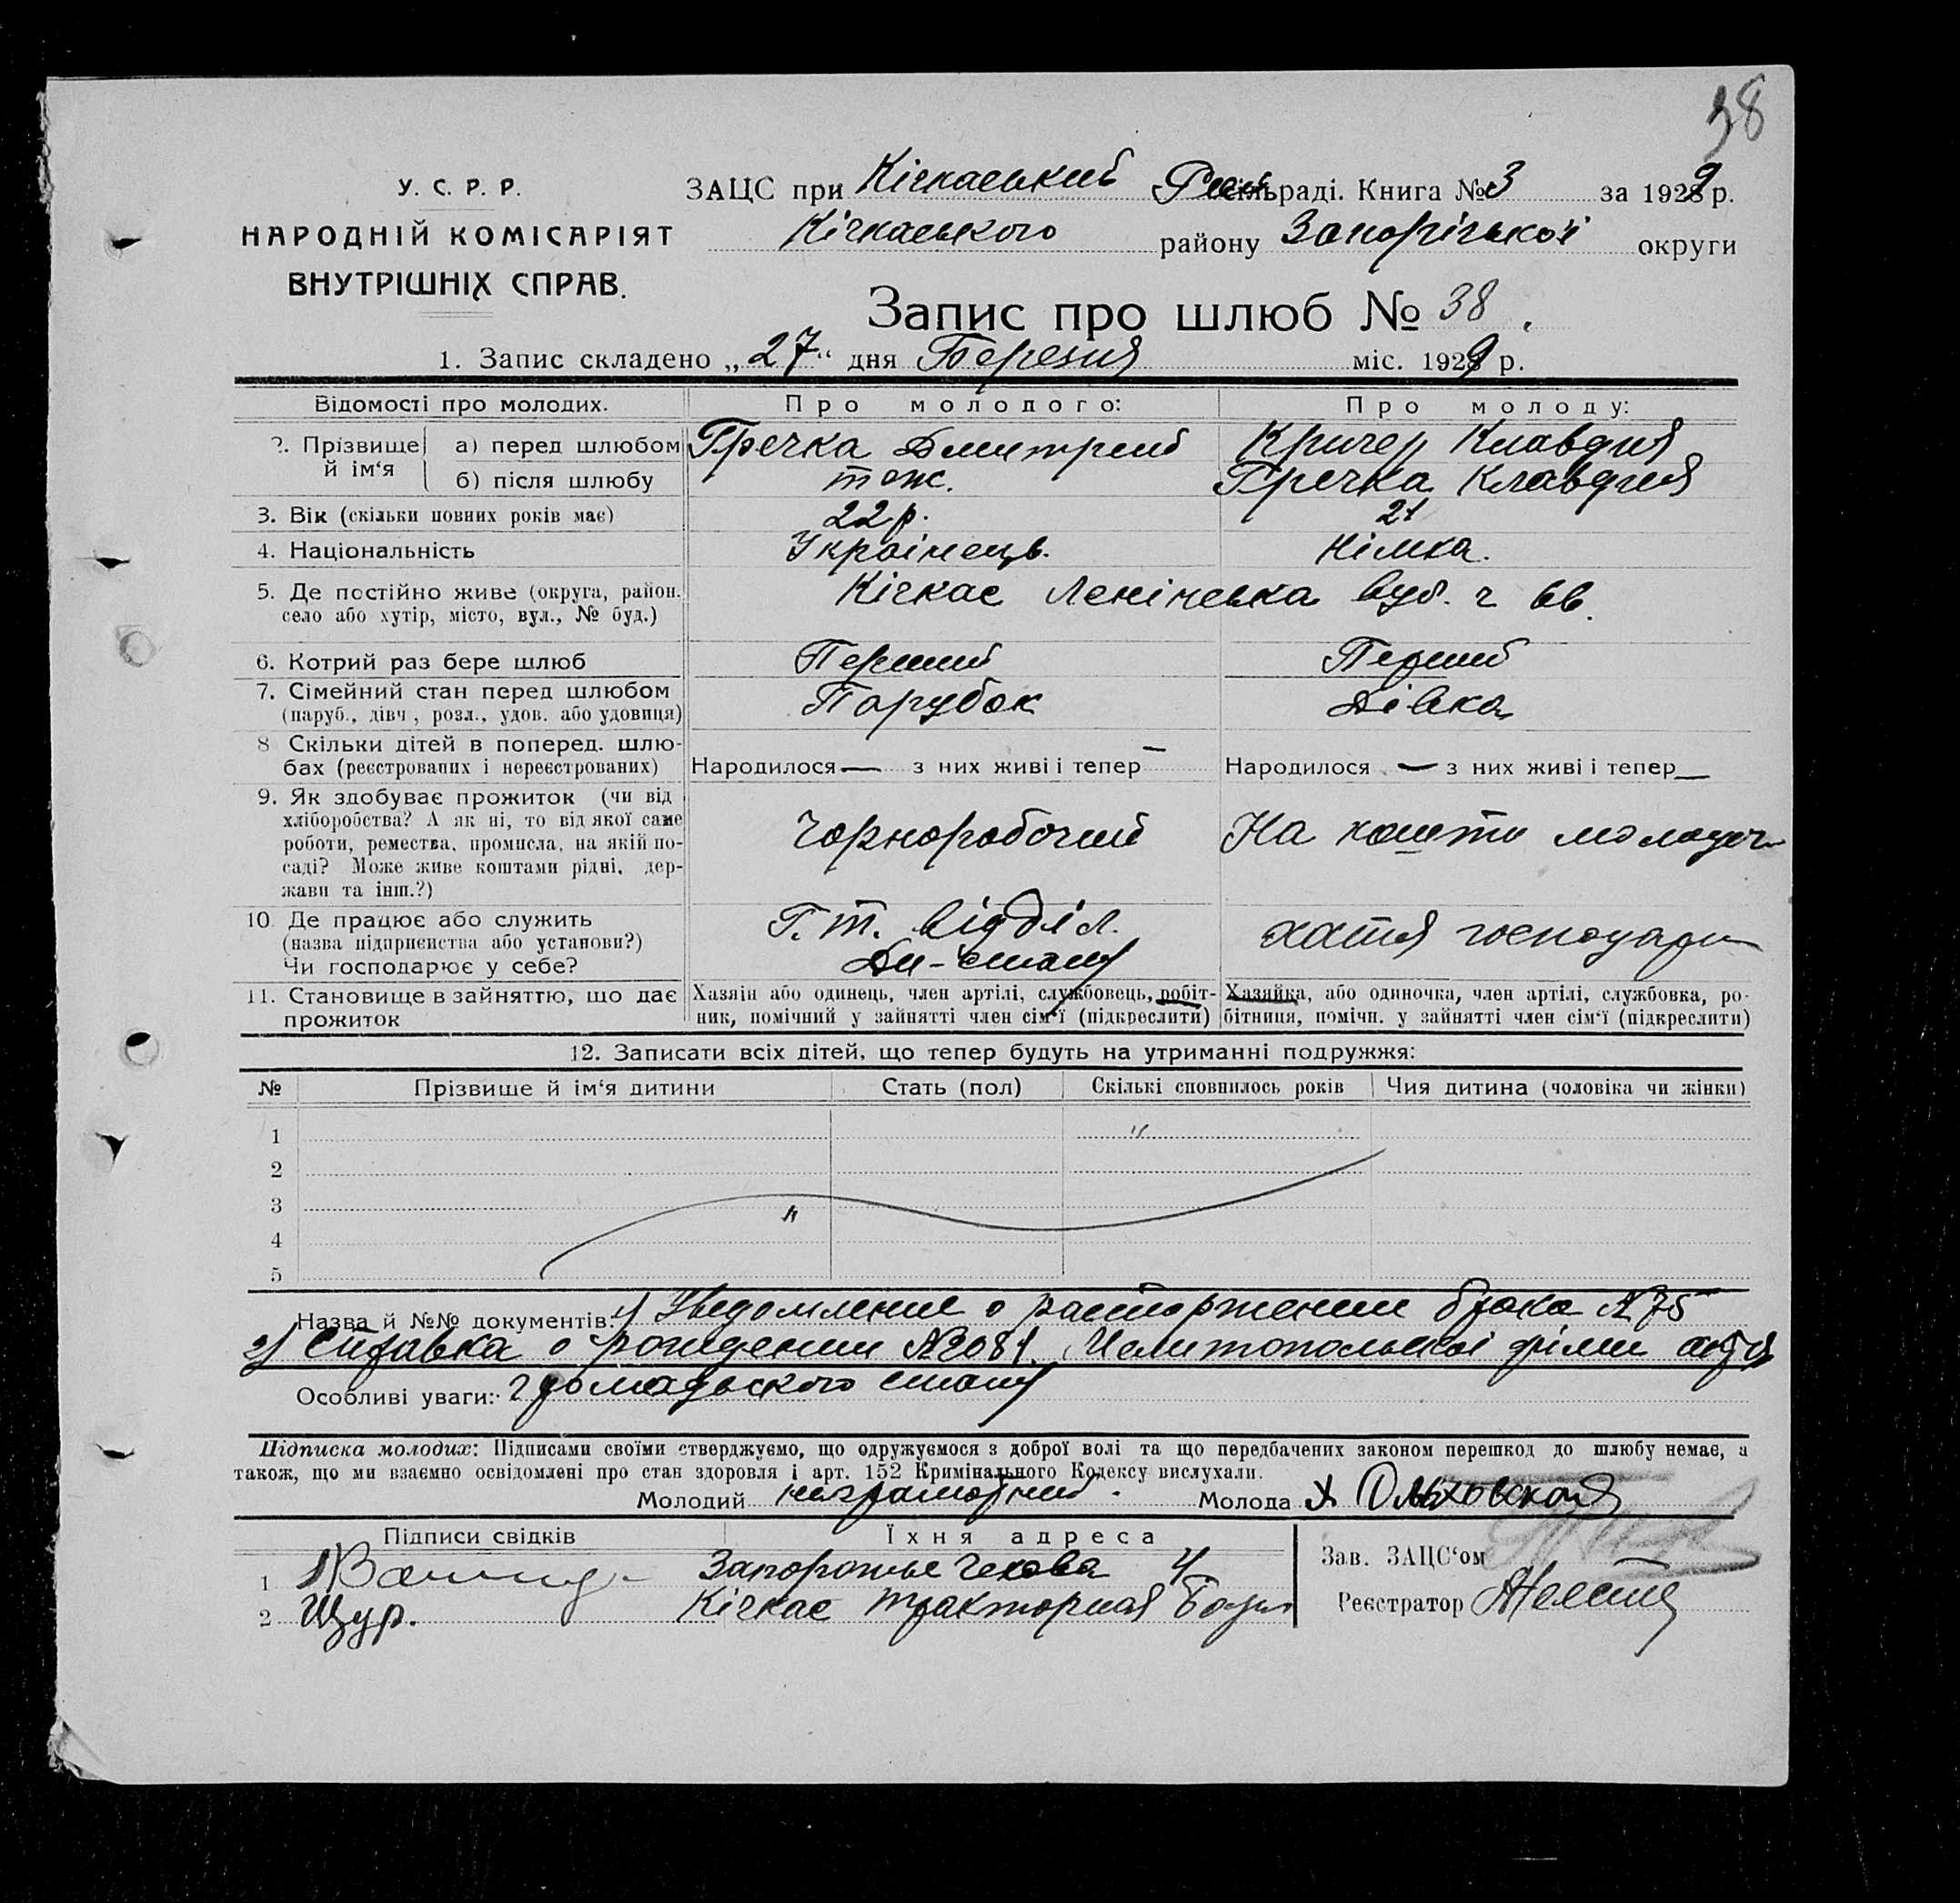 38
У. С. Р. Р.
НАРОДНІЙ КОМІСАРІЯТ
ВНУТРІШНІХ СПРАВ.
ЗАЦС при Кічкаський раді. Книга № 3 за 1929 р.
Кічкаського району Запорізької округи
Запис про шлюб № 38.
1. Запис складено „27“ дня Березня міс. 1929 р.
Відомості про молодих. Про молодого: Про молоду:
2. Прізвище й ім‘я а) перед шлюбом Гречка Дмитрий Кричер Клавдия
б) після шлюбу тож. Гречка Клавдия
3. Вік (скільки повних років має) 22 р. 21
4. Національність Украінець. Німка.
5. Де постійно живе (округа, район, Кічкас Ленінська вул. ч 66.
село або хутір, місто, вул., № буд.)
6. Котрий раз бере шлюб Перший Перший
7. Сімейний стан перед шлюбом Парубок Дівка
(паруб., дівч., розл., удов. або удовиця)
8 Скільки дітей в поперед. шлю-
бах (реєстрованих і нереєстрованих) Народилося — з них живі і тепер — Народилося — з них живі і тепер —
9. Як здобуває прожиток (чи від
хліборобства? А як ні, то від якої саме
роботи, ремества, промисла, на якій по- Чорноробочий На кошти
саді? Може живе коштами рідні, дер-
жави та інш.?)
10. Де працює або служить Г. т. відділ.
(назва підприємства або установи?) хатня господарк
Чи господарює у себе?
11. Становище в зайняттю, що дає Хазяїн або одинець, член артілі, службовець, робіт- Хазяйка, або одиночка, член артілі, службовка, ро-
прожиток ник, помічний у зайнятті член сім‘ї (підкреслити) бітниця, помічн. у зайнятті член сім‘ї (підкреслити)
12. Записати всіх дітей, що тепер будуть на утриманні подружжя:
№ Прізвище й ім‘я дитини Стать (пол) Скількі сповнилось років Чия дитина (чоловіка чи жінки)
1 "
2
3
4
5
Назва й №№ документів: 1) Уведомление о расторжении брака № 75
2) Справка о рождении № 2081. Мелитопольської філии
Особливі уваги: громадського стану
Підписка молодих: Підписами своїми стверджуємо, що одружуємося з доброї волі та що передбачених законом перешкод до шлюбу немає, а
також, що ми взаємно освідомлені про стан здоровля і арт. 152 Кримінального Кодексу вислухали.
Молодий неграмотний. Молода Х Ольховская
Підписи свідків Їхня адреса
Зав. ЗАЦС‘ом
1 Запорожье Чехова 4
2 Щур. Кічкас тракторная База
Реєстратор